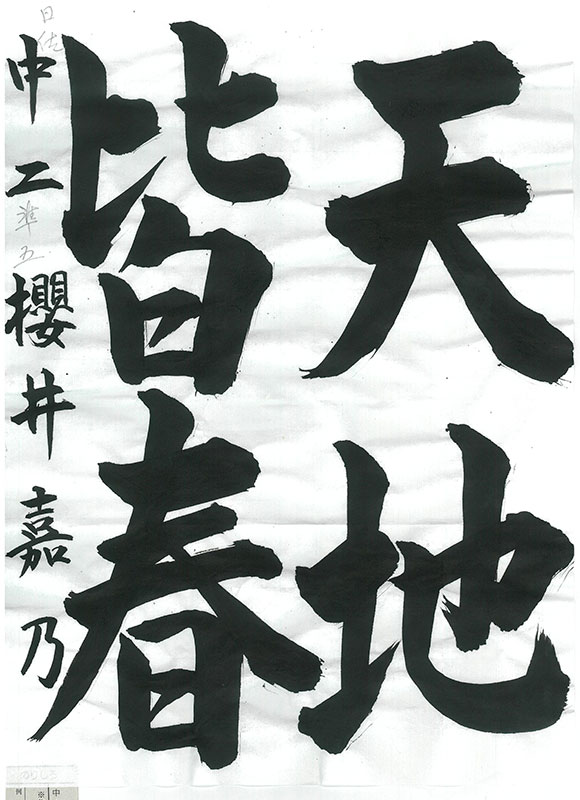 天地
皆春
中二 櫻井嘉乃
日佐
準五
中